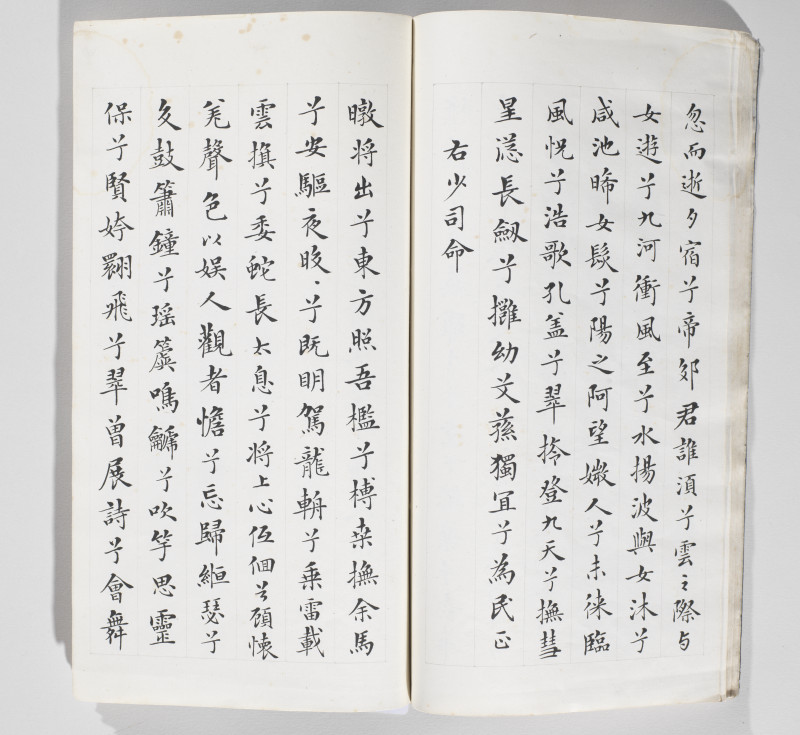 忽而逝夕宿兮帝郊君誰須兮雲之際与
女遊兮九河衝風至兮水揚波與女沐兮
咸池晞女髮兮陽之阿望媺人兮未徠臨
風怳兮浩歌孔盖兮翠旍登九天兮撫彗
星慫長劔兮擁幼艾蓀獨冝兮為民正
右少司命
暾将出兮東方照吾檻兮榑桒撫余馬
兮安驅夜晈〻兮既明駕龍輈兮乗雷載
雲旗兮委蛇長太息兮将上心低佪兮顧懐
羌聲色以娱人觀者憺兮忘歸縆瑟兮
交鼓簫鐘兮瑶簴鳴鷈兮吹竽思靈
保兮賢姱翾飛兮翠曾展詩兮會舞